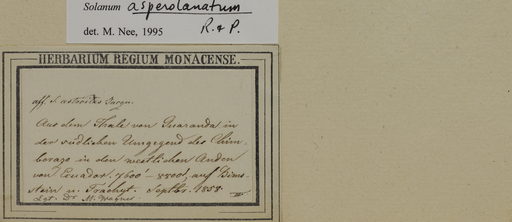 Solanum asperolanatum
R. & P.
det. M. Nee, 1995
HERBARIUM REGIUM MONACENSE.
aff. S. astroites Jacqu.
Aus dem Thale von Guaranda in
der südlichen Umgegend des Chim-
borazo in den westlichen Anden
von Ecuador. 7600'–8800', auf Bims-
stein u. Trachyt. Septbr. 1858.
Lgt. Dr. M. Wagner